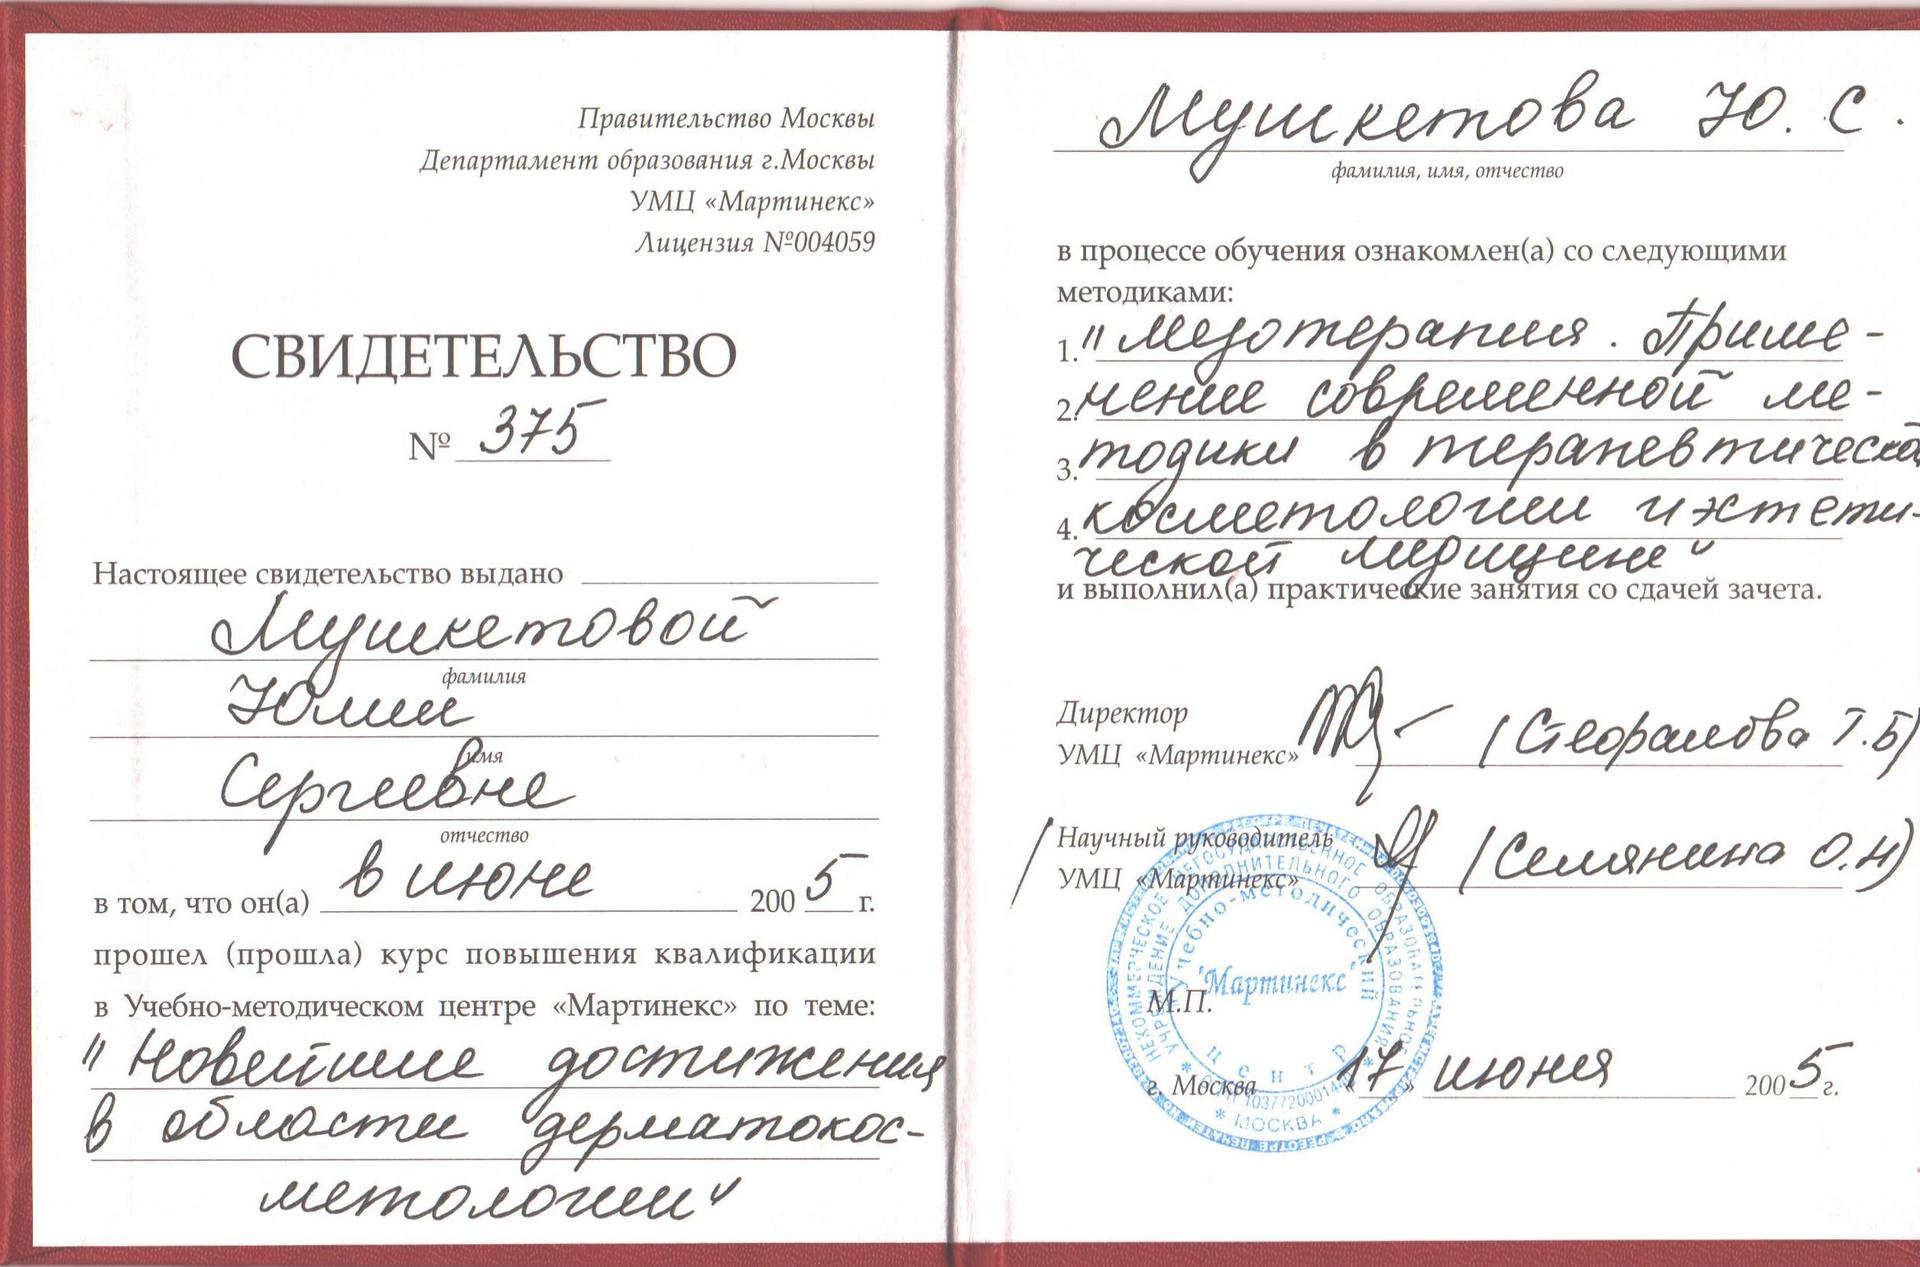 Правительство Москвы
Департамент образования г.Москвы
УМЦ «Мартинекс»
Лицензия №004059
СВИДЕТЕЛЬСТВО
№ 375
Настоящее свидетельство выдано
Мушкетовой
фамилия
Юлии
имя
Сергеевне
отчество
в том, что он(а) в июне 2005 г.
прошел (прошла) курс повышения квалификации
в Учебно-методическом центре «Мартинекс» по теме:
"Новейшие достижения
в области дерматокос-
метологии"
Мушкетова Ю. С.
фамилия, имя, отчество
в процессе обучения ознакомлен(а) со следующими
методиками:
1. "Мезотерапия. Приме-
2. нение современной ме-
3. тодики в терапевтическо
4. косметологии и эстети-
ческой медицине"
и выполнил(а) практические занятия со сдачей зачета.
Директор
УМЦ «Мартинекс» (Т.Б)
Научный руководитель
УМЦ «Мартинекс» (Селянина О.Н)
НЕКОММЕРЧЕСКОЕ НЕГОСУДАРСТВЕННОЕ ОБРАЗОВАТЕЛЬНОЕ
УЧРЕЖДЕНИЕ ДОПОЛНИТЕЛЬНОГО ОБРАЗОВАНИЯ
Учебно-методический
"Мартинекс"
центр
* МОСКВА *
М.П.
г. Москва «17» июня 2005 г.